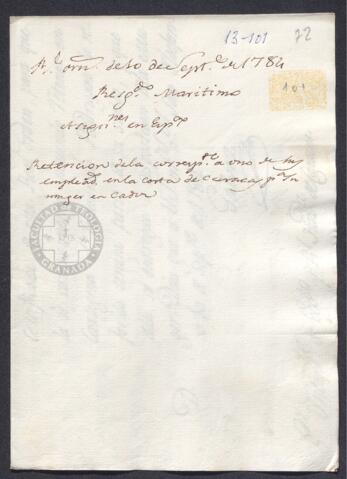 13-101
72
Rl orn. de 10 de Septe. de 1784
101
Resgdo. Maritimo
Asignnes. en Espa.
Retencion dela correspte. a uno de sus
emplead. en la costa de Caracas pa. su
muger en Cadiz
FACULTAD DE TEOLOGIA
GRANADA